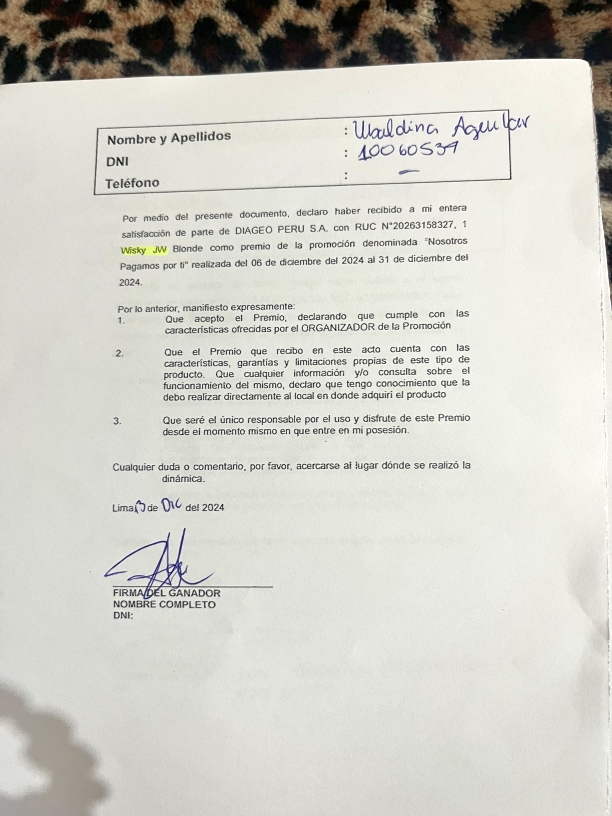 Nombre y Apellidos : Ubaldina Aguilar
DNI : 10060539
Teléfono : —
Por medio del presente documento, declaro haber recibido a mi entera
satisfacción de parte de DIAGEO PERU S.A. con RUC N°20263158327, 1
Wisky JW Blonde como premio de la promoción denominada "Nosotros
Pagamos por ti" realizada del 06 de diciembre del 2024 al 31 de diciembre del
2024.
Por lo anterior, manifiesto expresamente:
1. Que acepto el Premio, declarando que cumple con las
características ofrecidas por el ORGANIZADOR de la Promoción
2. Que el Premio que recibo en este acto cuenta con las
características, garantías y limitaciones propias de este tipo de
producto. Que cualquier información y/o consulta sobre el
funcionamiento del mismo, declaro que tengo conocimiento que la
debo realizar directamente al local en donde adquirí el producto
3. Que seré el único responsable por el uso y disfrute de este Premio
desde el momento mismo en que entre en mi posesión.
Cualquier duda o comentario, por favor, acercarse al lugar dónde se realizó la
dinámica.
Lima 13 de Dic del 2024
FIRMA DEL GANADOR
NOMBRE COMPLETO
DNI: